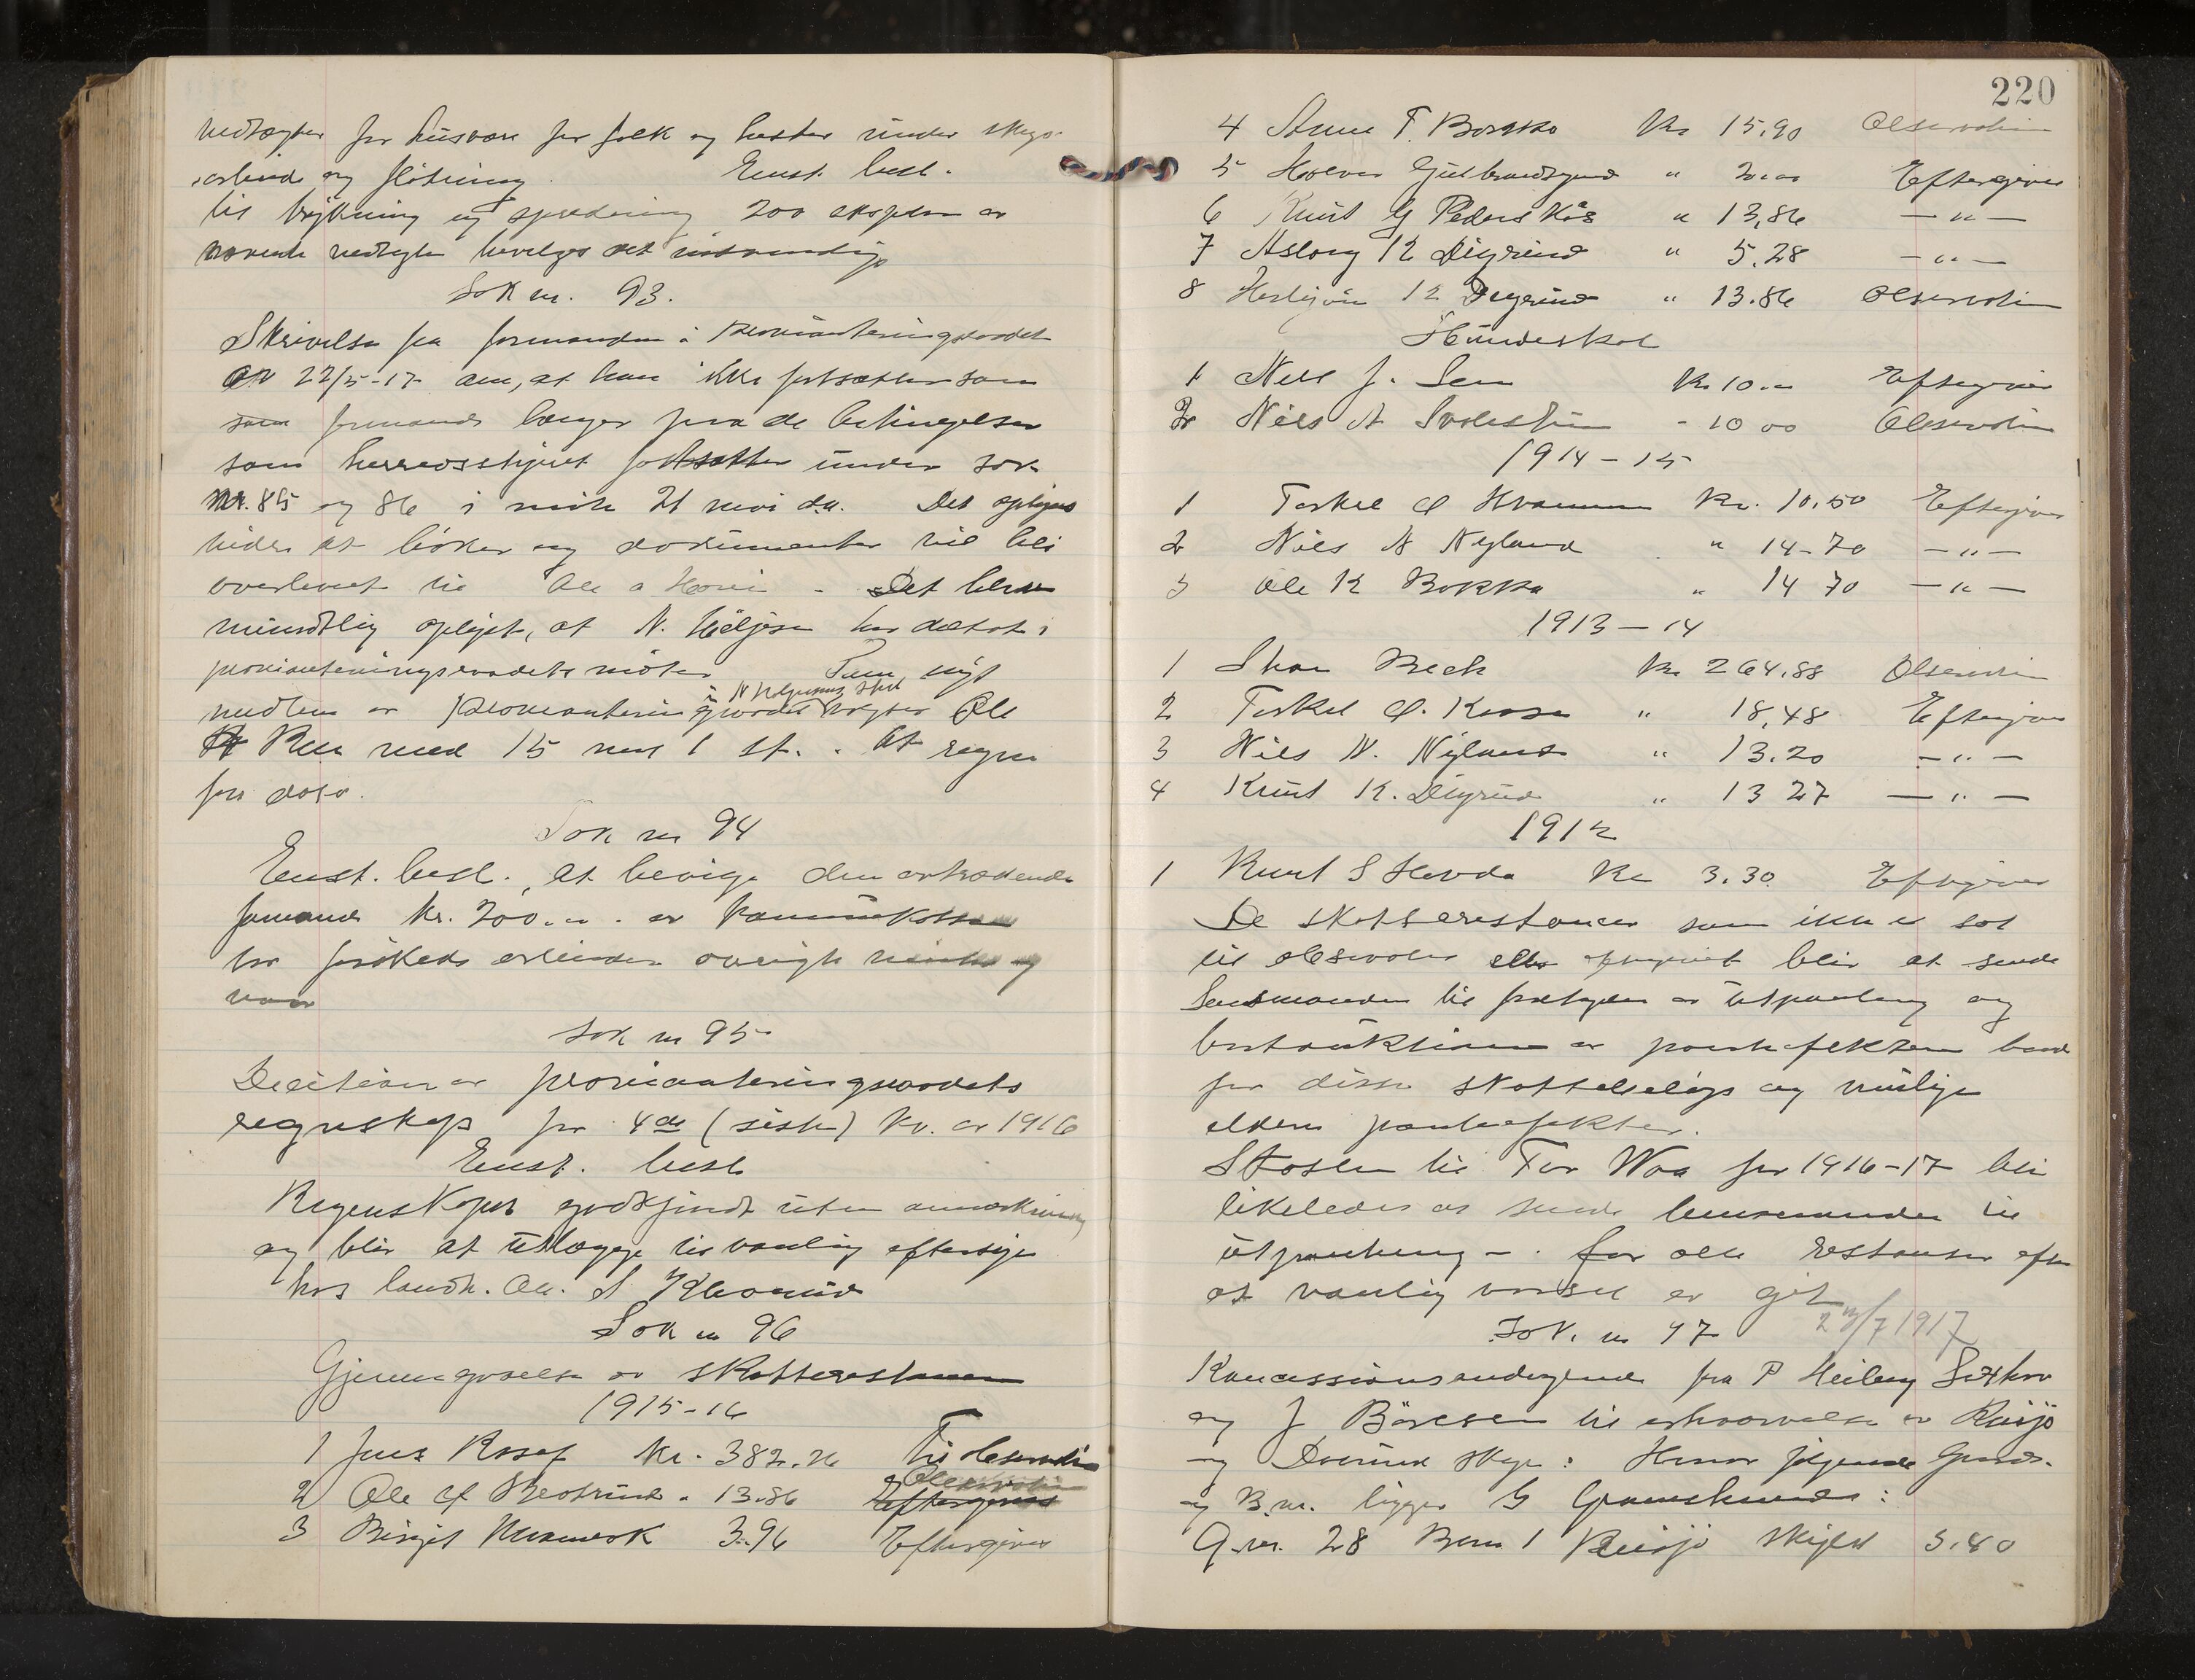 vedtægter for husvære for folk og hester under skogs-
arbeide og fløtning. Enst. besl.
til trykning og spredning 200 eksplr av
nævnte vedtægter bevilges det nødvendige
Sak nr. 93.
Skrivelse fra formanden i provianteringsraadet
av 22/5-17 om, at han ikke fortsætter som
som formand længer paa de betingelser
som herredsstyret fastsatte under sak
nr. 85 og 86 i møte 21 mai d.a. Det oplyses
videre at bøker og dokumenter vil bli
overlevert til Ole a Hovi. Det blev
mundtlig oplyst, at N. Helgesen har deltat i
provianteringsraadets møter Som nyt
i N Helgesens sted
medlem av provianteringsraadet vælges Ole
Ruu med 15 mot 1 st. At regne
fra dato.
Sak nr 94
Enst. besl., at bevilge den avtrædende
formand kr. 200.00 av kommunekassen
for forskjeds arbeider avvigte vinter og
vaar
Sak nr 95
Decition av provianteringsraadets
regnskap for 4de (siste) kv. av 1916
Enst. besl
Regenskapet godkjendt uten anmerkning
og blir at utlægge til vanlig eftersyn
hos landh. Ole. S Kleorud
Sak nr 96
Gjennemgaaelse av skatterestancer
1915-16
1 Jens Rosaf kr. 382.26 Til observation
Observation
2 Ole O Beotrud " 13.86 Eftergives
3 Birgit Kvamsok 3.96 Eftergives
220
4 Anne T. Borsko Kr 15.90 Observation
5 Holver Gulbrandsgard " 20.00 Eftergives
6 Knut G Pederskås " 13,86 — " —
7 Aslong K Digrud " 5.28 — " —
8 Herbjörn K Digrud " 13.86 Observation
Hundeskat
1 Nils J. Sem Kr 10.00 Eftergives
2 Nils A Svolestuen - 10 00 Observation
1914-15
1 Torkel O Kvammen Kr. 10.50 Eftergives
2 Nils N Nyland " 14-70 — " —
3 Ole K Bokka " 14 70 — " —
1913-14
1 Thor Beck Kr 264.88 Observation
2 Torkel O. Kaasa " 18,48 Eftergives
3 Nils N. Nyland " 13.20 — " —
4 Knut K. Digrud " 13 27 — " —
1912
1 Knut S Hovda Kr 3.30 Eftergives
De skatterestancer som ikke er sat
til observation eller eftergivet blir at sende
Lensmanden til foretagelse av utpantning og
bortauktion av panteefekter baade
for disse skattebeløp og mulige
eldre panteefekter.
Skatten til Tor Waa for 1916-17 blir
likeledes at sende lensmanden til
utpantning — for alle restanser efter
at vanlig varsel er git
23/7 1917
Sak. nr 97
Koncessionsandragende fra P Heiberg Sethre
og J Børesen til erhvervelse av Rusjø
og Dverud skoger: Hvorav følgende Gaards-
og B.nr. ligger i Gransherred:
G.nr. 28 Bnr 1 Rusjø skyld 3.40